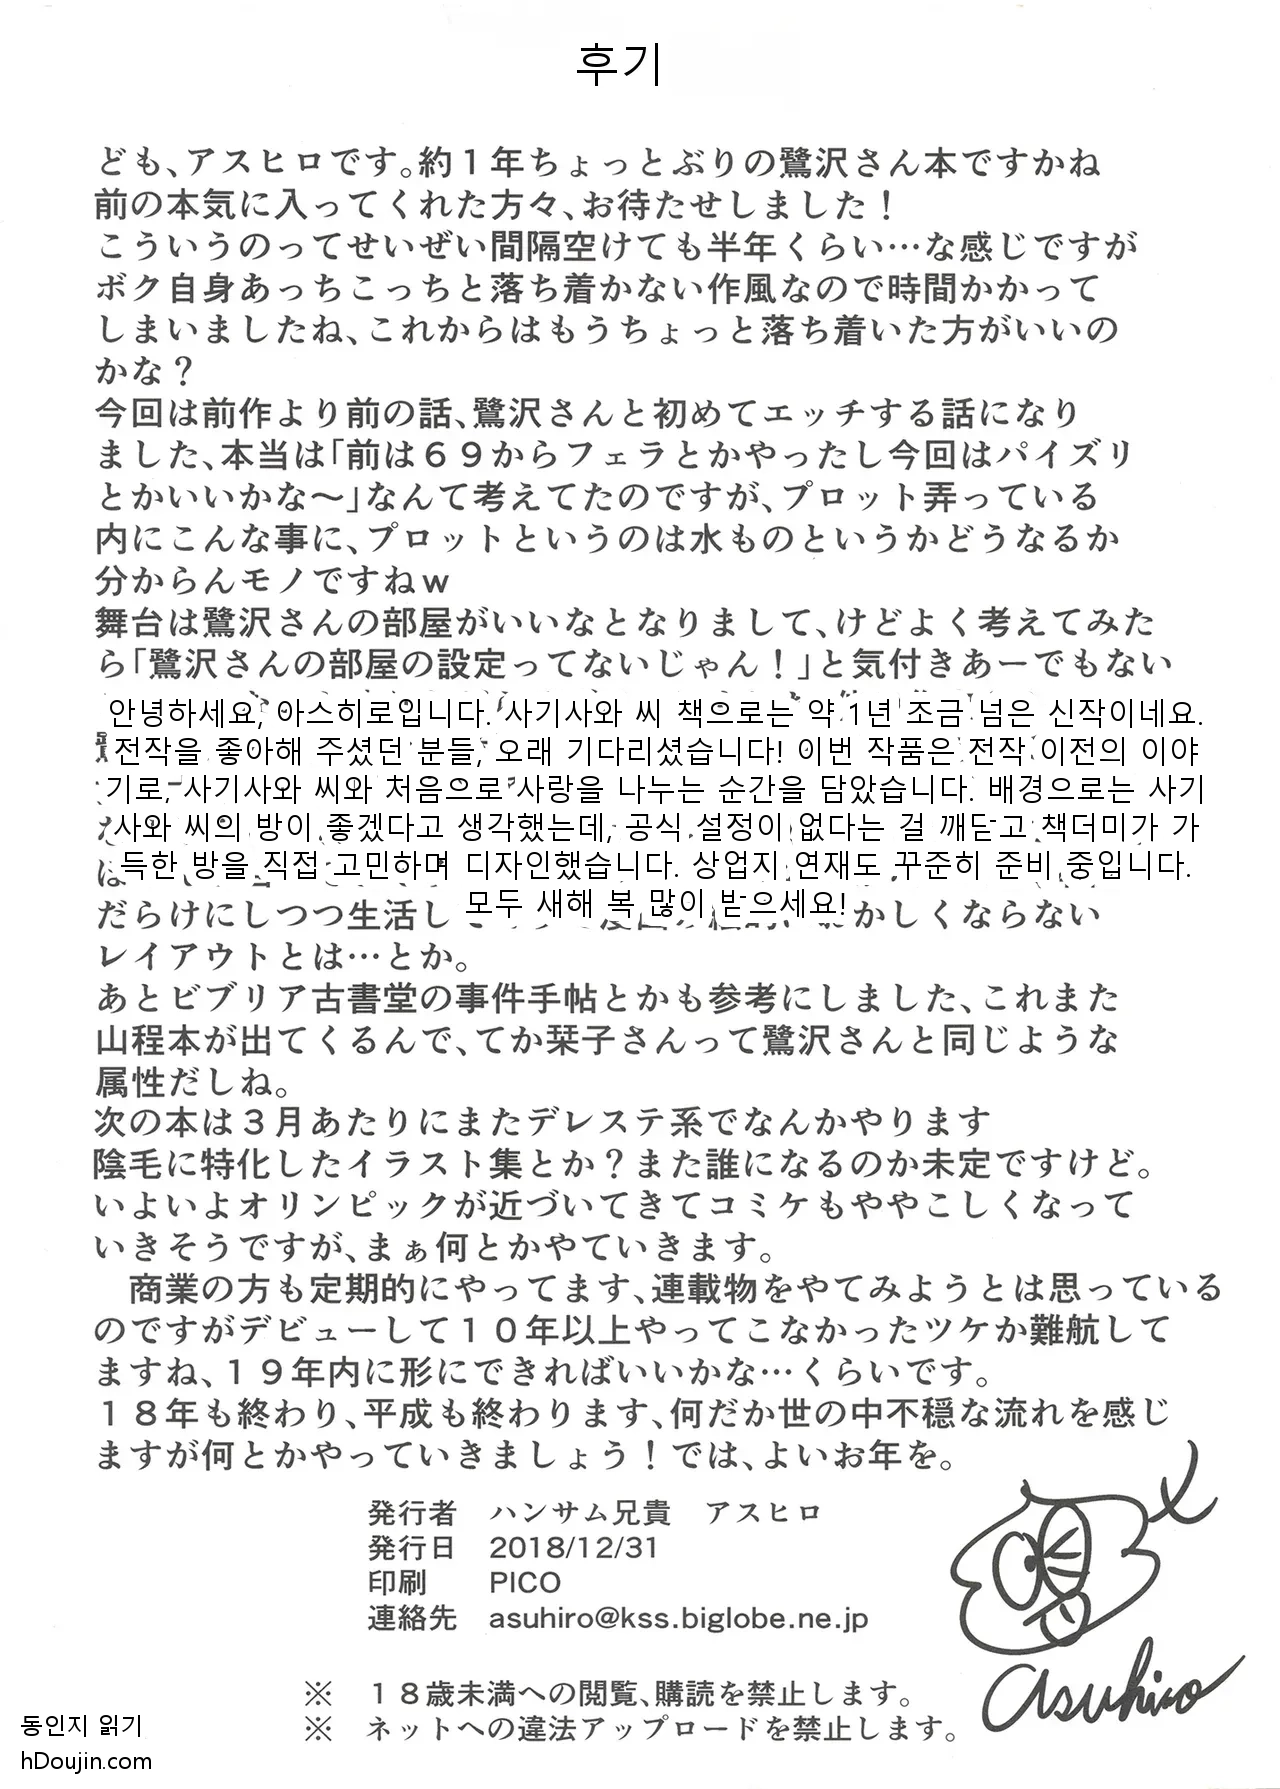 후기
ども、アスヒロです。約１年ちょっとぶりの鷺沢さん本ですかね
前の本気に入ってくれた方々、お待たせしました！
こういうのってせいぜい間隔空けても半年くらい…な感じですが
ボク自身あっちこっちと落ち着かない作風なので時間かかって
しまいましたね、これからはもうちょっと落ち着いた方がいいの
かな？
今回は前作より前の話、鷺沢さんと初めてエッチする話になり
ました、本当は「前は６９からフェラとかやったし今回はパイズリ
とかいいかな～」なんて考えてたのですが、プロット弄っている
内にこんな事に、プロットというのは水ものというかどうなるか
分からんモノですねｗ
舞台は鷺沢さんの部屋がいいなとなりまして、けどよく考えてみた
ら「鷺沢さんの部屋の設定ってないじゃん！」と気付きあーでもない
안녕하세요, 아스히로입니다. 사기사와 씨 책으로는 약 1년 조금 넘은 신작이네요.
전작을 좋아해 주셨던 분들, 오래 기다리셨습니다! 이번 작품은 전작 이전의 이야
기로, 사기사와 씨와 처음으로 사랑을 나누는 순간을 담았습니다. 배경으로는 사기
사와 씨의 방이 좋겠다고 생각했는데, 공식 설정이 없다는 걸 깨닫고 책더미가 가
득한 방을 직접 고민하며 디자인했습니다. 상업지 연재도 꾸준히 준비 중입니다.
모두 새해 복 많이 받으세요!
だらけにしつつ生活し かしくならない
レイアウトとは…とか。
あとビブリア古書堂の事件手帖とかも参考にしました、これまた
山程本が出てくるんで、てか栞子さんって鷺沢さんと同じような
属性だしね。
次の本は３月あたりにまたデレステ系でなんかやります
陰毛に特化したイラスト集とか？また誰になるのか未定ですけど。
いよいよオリンピックが近づいてきてコミケもややこしくなって
いきそうですが、まぁ何とかやていきます。
商業の方も定期的にやってます、連載物をやてみようとは思っている
のですがデビューして１０年以上やってこなかったツケか難航して
ますね、１９年内に形にできればいいかな…くらいです。
１８年も終わり、平成も終わります、何だか世の中不穏な流れを感じ
ますが何とかやっていきましょう！では、よいお年を。
発行者 ハンサム兄貴 アスヒロ
発行日 2018/12/31
印刷 PICO
連絡先 asuhiro@kss.biglobe.ne.jp
asuhiro
※ １８歳未満への閲覧、購読を禁止します。
※ ネットへの違法アップロードを禁止します。
동인지 읽기
hDoujin.com